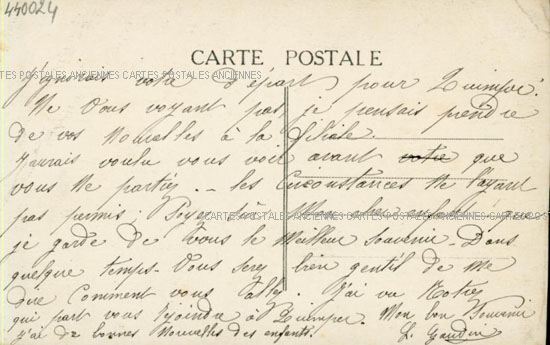 440024
CARTE POSTALE
J'ignorais votre départ pour Quimper.
CARTES POSTALES ANCIENNES CARTES POSTALES ANCIENNES
Ne vous voyant pas je pensais prendre
de vos nouvelles à la filiale
J'aurais voulu vous voir avant votre que
vous ne partiez. les circonstances ne l'ayant
pas permis: Soyez sûr Mon
CARTES POSTALES ANCIENNES CARTES POSTALES ANCIENNES
je garde de vous le meilleur souvenir. Dans
quelque temps. Vous serez bien gentil de me
dire comment vous allez. J'ai vu
qui part vous rejoindre à Quimper. Mon bon Souvenir
J'ai de bonnes nouvelles des enfants.